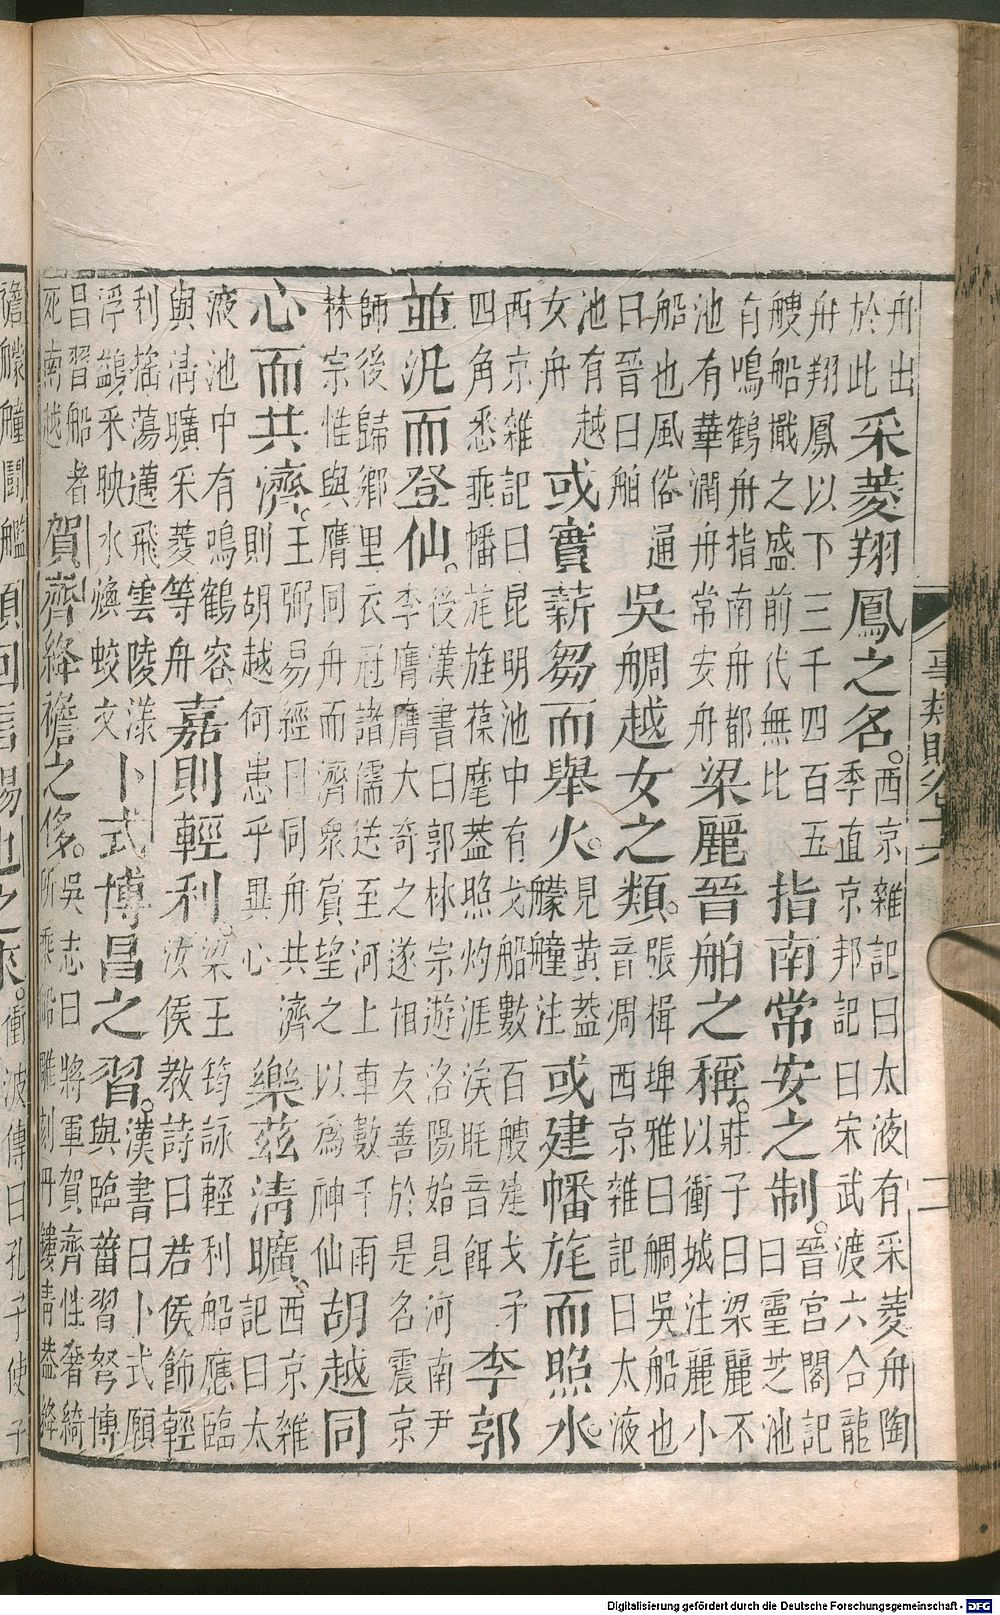 事類賦卷十六
二
舟出
於此
采菱翔鳳之名。
西京雜記曰太液有采菱舟陶
季直京邦記曰宋武渡六合龍
舟翔鳳以下三千四百五
艘船艦之盛前代無比
指南常安之制。
晉宮閣記
曰靈芝池
有鳴鶴舟指南舟都
池有華潤舟常安舟
梁麗晉舶之稱。
莊子曰梁麗不
以衝城注麗小
船也風俗通
曰晉曰舶
吳越女之類。
張揖埤雅曰吳船也
音凋西京雜記曰太液
池有越
女舟
或實薪芻而舉火。
見黃蓋
艨艟注
或建幡旄而照水。
西京雜記曰昆明池中有戈船數百艘建戈矛
四角悉垂幡旄旌葆麾蓋照灼涯涘眊音餌
李郭
並汎而登仙。
後漢書曰郭林宗遊洛陽始見河南尹
李膺膺大奇之遂相友善於是名震京
師後歸鄉里衣冠諸儒送至河上車數千兩
林宗惟與膺同舟而濟衆賓望之以爲神仙
胡越同
心而共濟。
王弼易經曰同舟共濟
則胡越何患乎異心
樂茲清曠。
西京雜
記曰太
液池中有鳴鶴容
與清曠采菱等舟
嘉則輕利。
梁王筠詠輕利船應臨
汝侯教詩曰君侯飾輕
利搖蕩邁飛雲陵漾
浮鷁采映水煥蛟文
卜式博昌之習。
漢書曰卜式願
與臨菑習弩博
昌習船者
死南越
賀齊絳襜之侈。
吳志曰將軍賀齊性奢綺
所乘船雕刻丹鏤青蓋絳
襜艨艟鬭艦
顏回言賜也之來。
衝波傳曰孔子使子
Digitalisierung gefördert durch die Deutsche Forschungsgemeinschaft - DFG